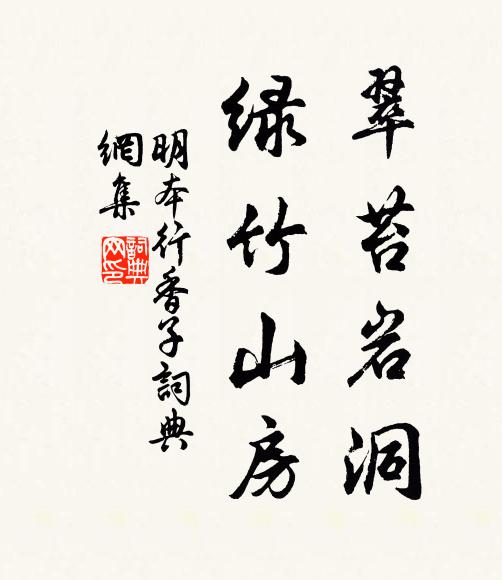 翠苔岩洞
绿竹山房
明本行香子詞典
網集
詞典网印